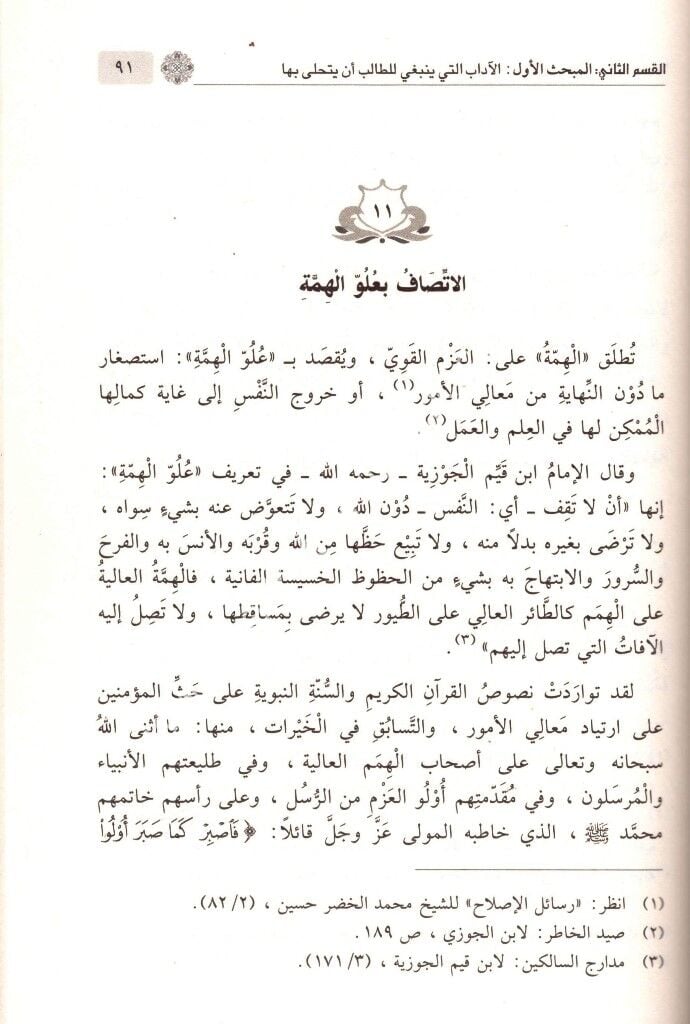 القسم الثاني: المبحث الأول: الآداب التي ينبغي للطالب أن يتحلى بها
٩١
١١
الاتِّصَافُ بعُلُوّ الْهِمَّةِ
تُطلَق «الْهِمّةُ» على: العَزْم القَوِيّ ، ويُقصَد بـ «عُلُوّ الْهِمَّةِ»: استصغار
ما دُوْن النِّهايةِ من مَعالِي الأمور(١) ، أو خروج النَّفْسِ إلى غاية كمالِها
الْمُمْكِن لها في العِلم والعَمَل(٢).
وقال الإمامُ ابن قَيِّم الْجَوْزِية ـ رحمه الله ـ في تعريف «عُلُوّ الْهِمّةِ»:
إنها «أنْ لا تَقِف ـ أي: النَّفس ـ دُوْن الله ، ولا تَتعوَّض عنه بشيءٍ سِواه ،
ولا تَرْضَى بغيره بدلاً منه ، ولا تَبِيْع حَظَّها مِن الله وقُرْبَه والأنسَ به والفرحَ
والسُّرورَ والابتهاجَ به بشيءٍ من الحظوظ الخسيسة الفانية ، فالْهِمَّةُ العاليةُ
على الْهِمَم كالطَّائر العالي على الطُّيور لا يرضى بِمَساقِطها ، ولا تَصِلُ إليه
الآفاتُ التي تصل إليهم»(٣).
لقد توارَدَتْ نصوصُ القرآنِ الكريمِ والسُّنّةِ النبويةِ على حَثِّ المؤمنين
على ارتياد مَعالِي الأمور ، والتَّسابُقِ في الْخَيْرات ، منها: ما أثنى اللهُ
سبحانه وتعالى على أصحاب الْهِمَم العالية ، وفي طليعتهم الأنبياء
والْمُرسَلون ، وفي مُقَدّمتِهم أُوْلُو العَزْمِ من الرُّسُل ، وعلى رأسهم خاتمهم
محمَّد ﷺ ، الذي خاطبه المولى عَزَّ وجَلَّ قائلاً: ﴿ فَٱصۡبِرۡ كَمَا صَبَرَ أُوْلُواْ
(١) انظر: «رسائل الإصلاح» للشيخ محمد الخضر حسين ، (٨٢/٢).
(٢) صيد الخاطر: لابن الجوزي ، ص ١٨٩.
(٣) مدارج السالكين: لابن قيم الجوزية ، (١٧١/٣).